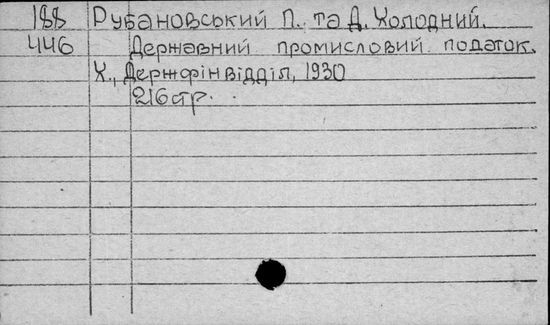 188 Рубановський П. та Д. Холодний.
446 Державний промисловий податок.
Х., Держфінвідділ, 1930
216 стр.